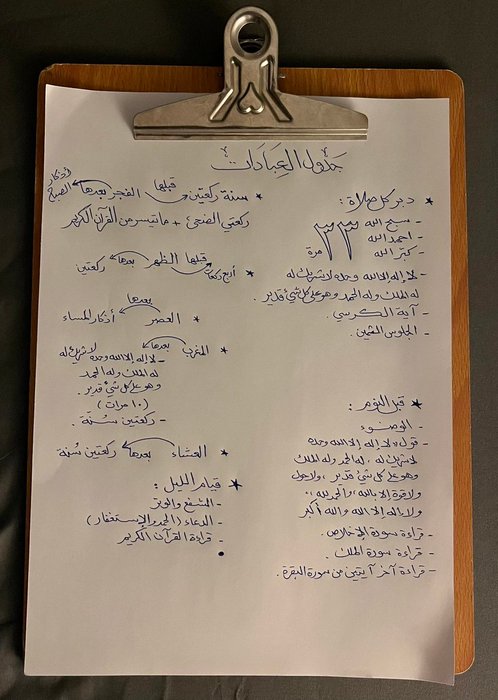 جدول العبادات
★ دبر كل صلاة :
- سبح الله
- احمد الله
- كبّر الله
٣٣ مرة
- لا إله إلا الله وحده لا شريك له
له الملك وله الحمد وهو على كل شيء قدير .
- آية الكرسي .
- الجلوس
★ قبل النوم :
- الوضوء
- قول لا إله إلا الله وحده
لا شريك له ، له الحمد وله الملك
وهو على كل شيء قدير ، ولا حول
ولا قوة إلا بالله ، والحمد لله ،
ولا إله إلا الله والله أكبر
- قراءة سورة الإخلاص .
- قراءة سورة الملك .
- قراءة آخر آيتين من سورة البقرة .
★ سنة ركعتين قبلها الفجر بعدها أذكار الصباح
ركعتي الضحى + ما تيسر من القرآن الكريم
★ أربع ركعات قبلها الظهر بعدها ركعتين
★ العصر بعدها أذكار المساء
★ المغرب بعدها
- لا إله إلا الله وحده لا شريك له
له الملك وله الحمد
وهو على كل شيء قدير .
( ١٠ مرات )
- ركعتين سُنّة .
★ العشاء بعدها ركعتين سُنة
★ قيام الليل :
- الشفع والوتر
- الدعاء (الحمد والإستغفار)
- قراءة القرآن الكريم